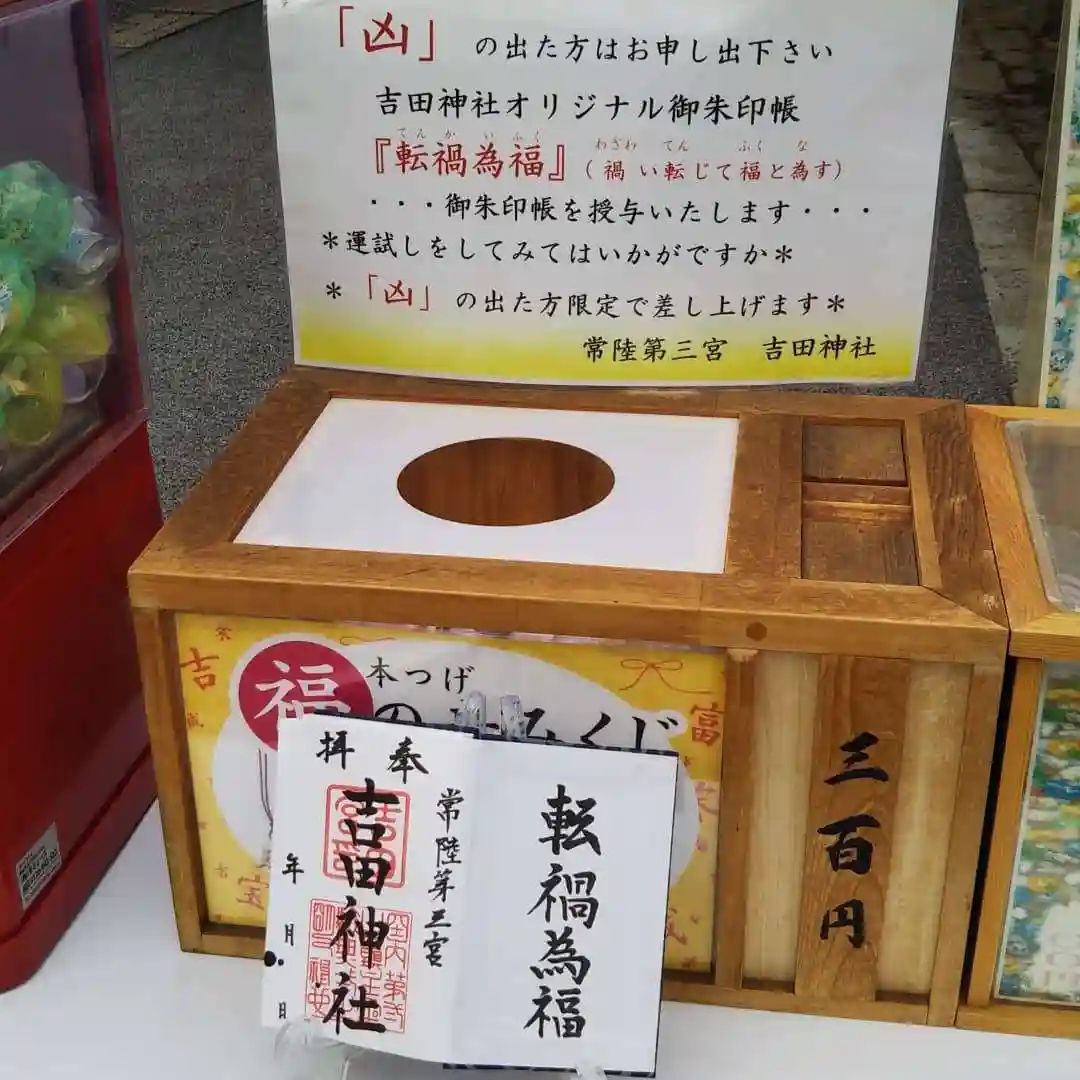 「凶」の出た方はお申し出下さい
吉田神社オリジナル御朱印帳
てんかいふく わざわ てん ふく な
『転禍為福』(禍い転じて福と為す)
・・・御朱印帳を授与いたします・・・
＊運試しをしてみてはいかがですか＊
＊「凶」の出た方限定で差し上げます＊
常陸第三宮 吉田神社
吉
福
本つげ
みくじ
富
宝
三百円
奉拝
常陸第三宮
吉田神社
年 月 日
転禍為福